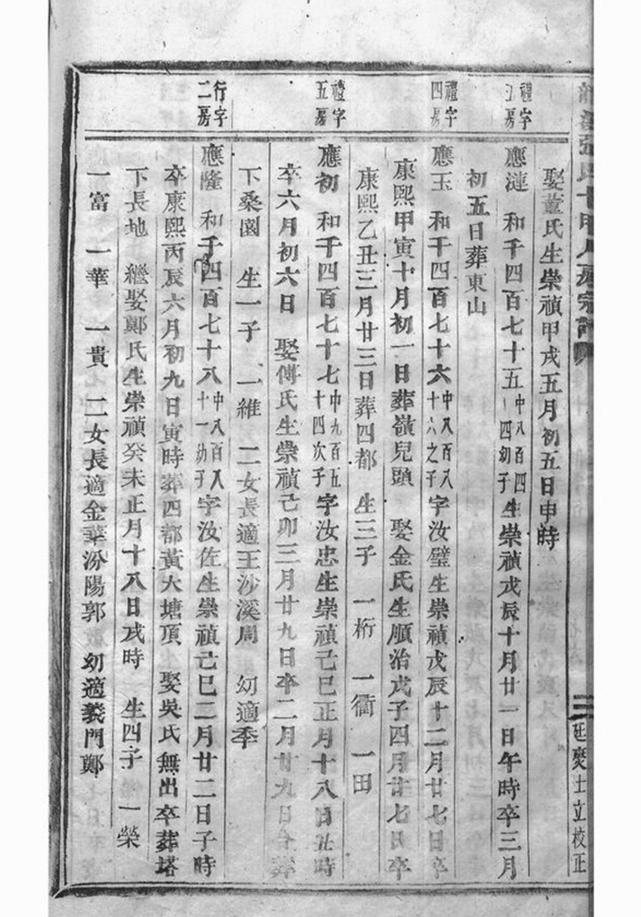 娶董氏生崇禎甲戌五月初五日申時
禮字五房
應漣 和千四百七十五中八百四一四幼子生崇禎戊辰十月廿一日午時卒三月
初五日葬東山
禮字四房
應玉 和千四百七十六中八百八十六之子字汝璧生崇禎戊辰十二月廿七日卒
康熙甲寅十月初一日葬嶺兒頭 娶金氏生順治戊子四月廿七日卒
康熙乙丑三月廿三日葬四都 生三子 一桁 一衢 一田
禮字五房
應初 和千四百七十七中九百五十四次子字汝忠生崇禎己巳正月十八日丑時
卒六月初六日 娶傅氏生崇禎己卯三月廿九日卒二月廿九日合葬
下桑園 生一子 一維 二女長適王沙溪周 幼適季
行字二房
應隆 和千四百七十八中八百八十一幼子字汝佐生崇禎己巳二月廿二日子時
卒康熙丙辰六月初九日寅時葬四都黃大塘頂 娶吳氏無出卒葬塔
下長地 繼娶鄭氏生崇禎癸未正月十八日戌時 生四子 一榮
一富 一華 一貴 二女長適金華汾陽郭 幼適義門鄭
三 延慶士立校正